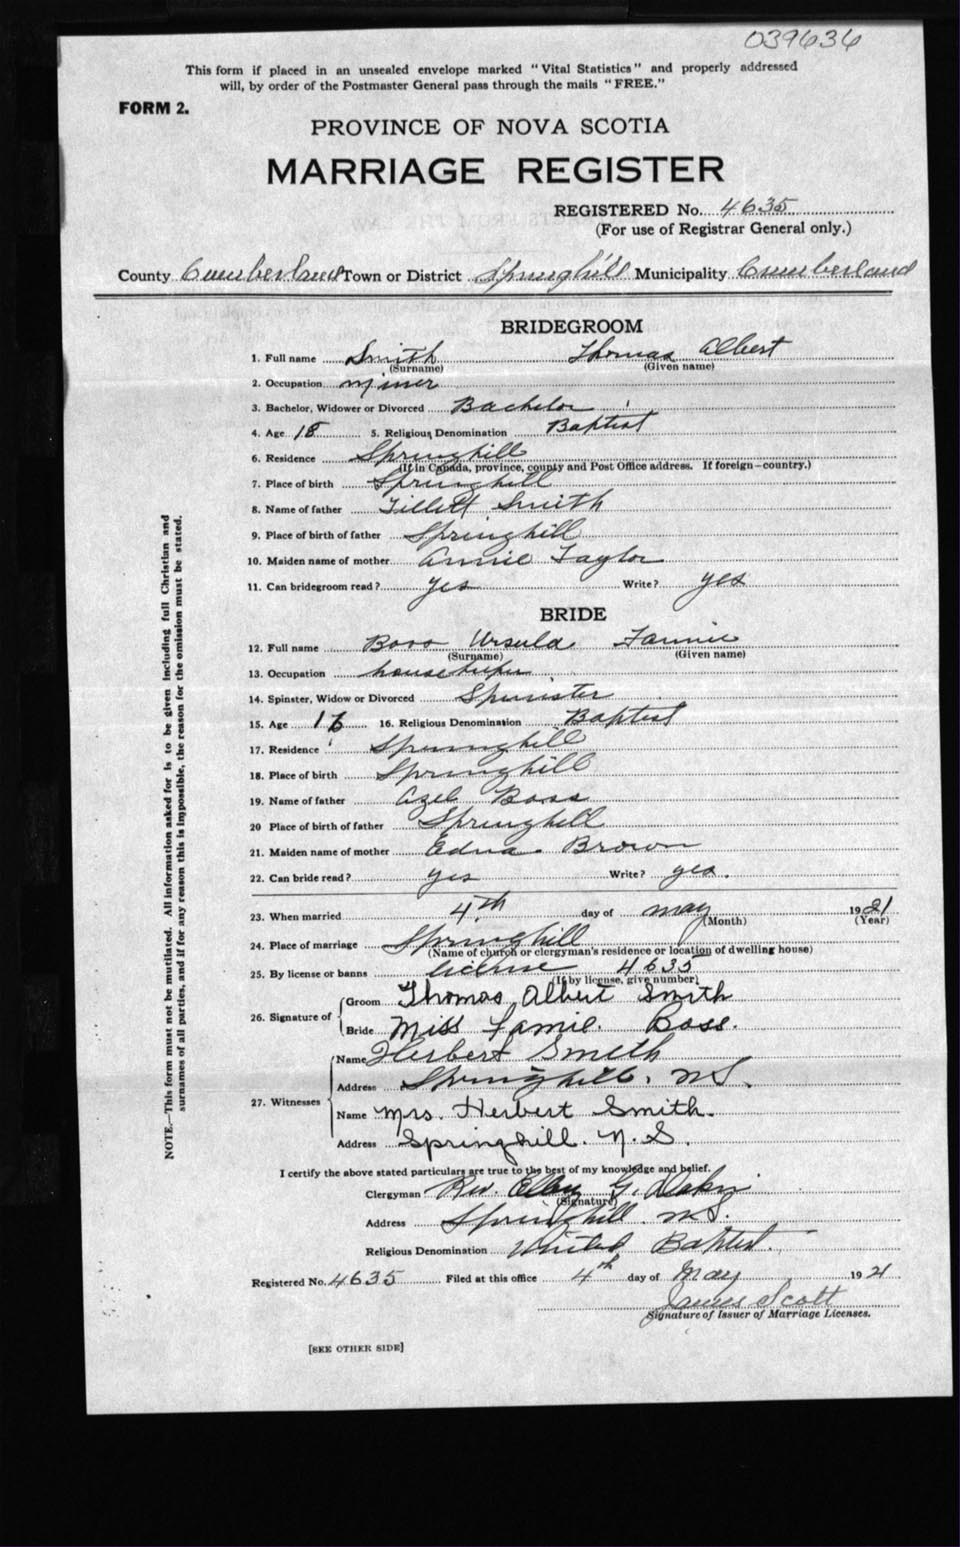 039636
This form if placed in an unsealed envelope marked "Vital Statistics" and properly addressed
will, by order of the Postmaster General pass through the mails "FREE."
FORM 2.
PROVINCE OF NOVA SCOTIA
MARRIAGE REGISTER
REGISTERED No. 4635
(For use of Registrar General only.)
County Cumberland Town or District Springhill Municipality Cumberland
BRIDEGROOM
1. Full name Smith Thomas Albert
(Surname) (Given name)
2. Occupation miner
3. Bachelor, Widower or Divorced Bachelor
4. Age 18 5. Religious Denomination Baptist
6. Residence Springhill
(If in Canada, province, county and Post Office address. If foreign—country.)
7. Place of birth Springhill
8. Name of father Smith
9. Place of birth of father Springhill
10. Maiden name of mother Annie Taylor
11. Can bridegroom read? yes Write? yes
BRIDE
12. Full name Boss Ursula Fannie
(Surname) (Given name)
13. Occupation housekeeper
14. Spinster, Widow or Divorced Spinster
15. Age 16 16. Religious Denomination Baptist
17. Residence Springhill
18. Place of birth Springhill
19. Name of father Azel Boss
20 Place of birth of father Springhill
21. Maiden name of mother Edna Brown
22. Can bride read? yes Write? yes.
23. When married 4th day of may 1921
(Month) (Year)
24. Place of marriage Springhill
(Name of church or clergyman's residence or location of dwelling house)
25. By license or banns license 4635
(If by license, give number)
26. Signature of Groom Thomas Albert Smith
Bride Miss Fannie. Boss.
27. Witnesses Name Herbert Smith
Address Springhill, N.S.
Name Mrs. Herbert Smith.
Address Springhill. N.S.
I certify the above stated particulars are true to the best of my knowledge and belief.
Clergyman Rev. G.
(Signature)
Address Springhill, N.S.
Religious Denomination United Baptist.
Registered No. 4635 Filed at this office 4th day of May 1921
James Scott
Signature of Issuer of Marriage Licenses.
[SEE OTHER SIDE]
NOTE.—This form must not be mutilated. All information asked for is to be given including full Christian and
surnames of all parties, and if for any reason this is impossible, the reason for the omission must be stated.